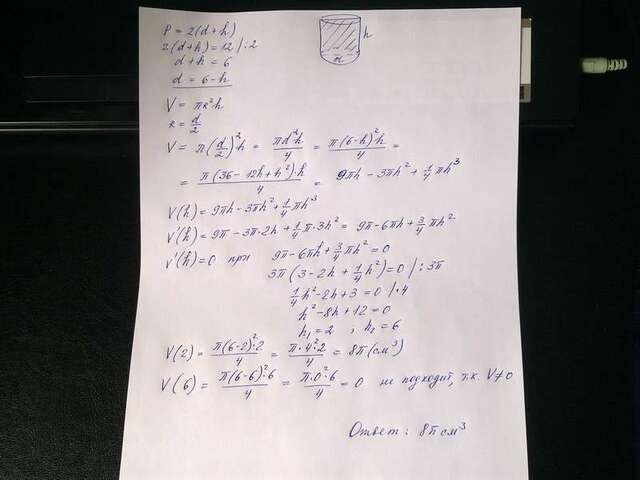 P = 2(d+h)
2(d+h) = 12 / :2
d+h = 6
d = 6-h
h
V = πR²h
R = d/2
V = π(d/2)²·h = πd²h/4 = π(6-h)²h/4 =
= π(36-12h+h²)·h/4 = 9πh - 3πh² + 1/4 πh³
V(h) = 9πh - 3πh² + 1/4 πh³
V'(h) = 9π - 3π·2h + 1/4 π·3h² = 9π - 6πh + 3/4 πh²
V'(h) = 0 при 9π - 6πh + 3/4 πh² = 0
3π(3 - 2h + 1/4 h²) = 0 / :3π
1/4 h² - 2h + 3 = 0 /·4
h² - 8h + 12 = 0
h₁ = 2 ; h₂ = 6
V(2) = π(6-2)²·2/4 = π·4²·2/4 = 8π (см³)
V(6) = π(6-6)²·6/4 = π·0²·6/4 = 0 не подходит, т.к. V≠0
Ответ: 8π см³